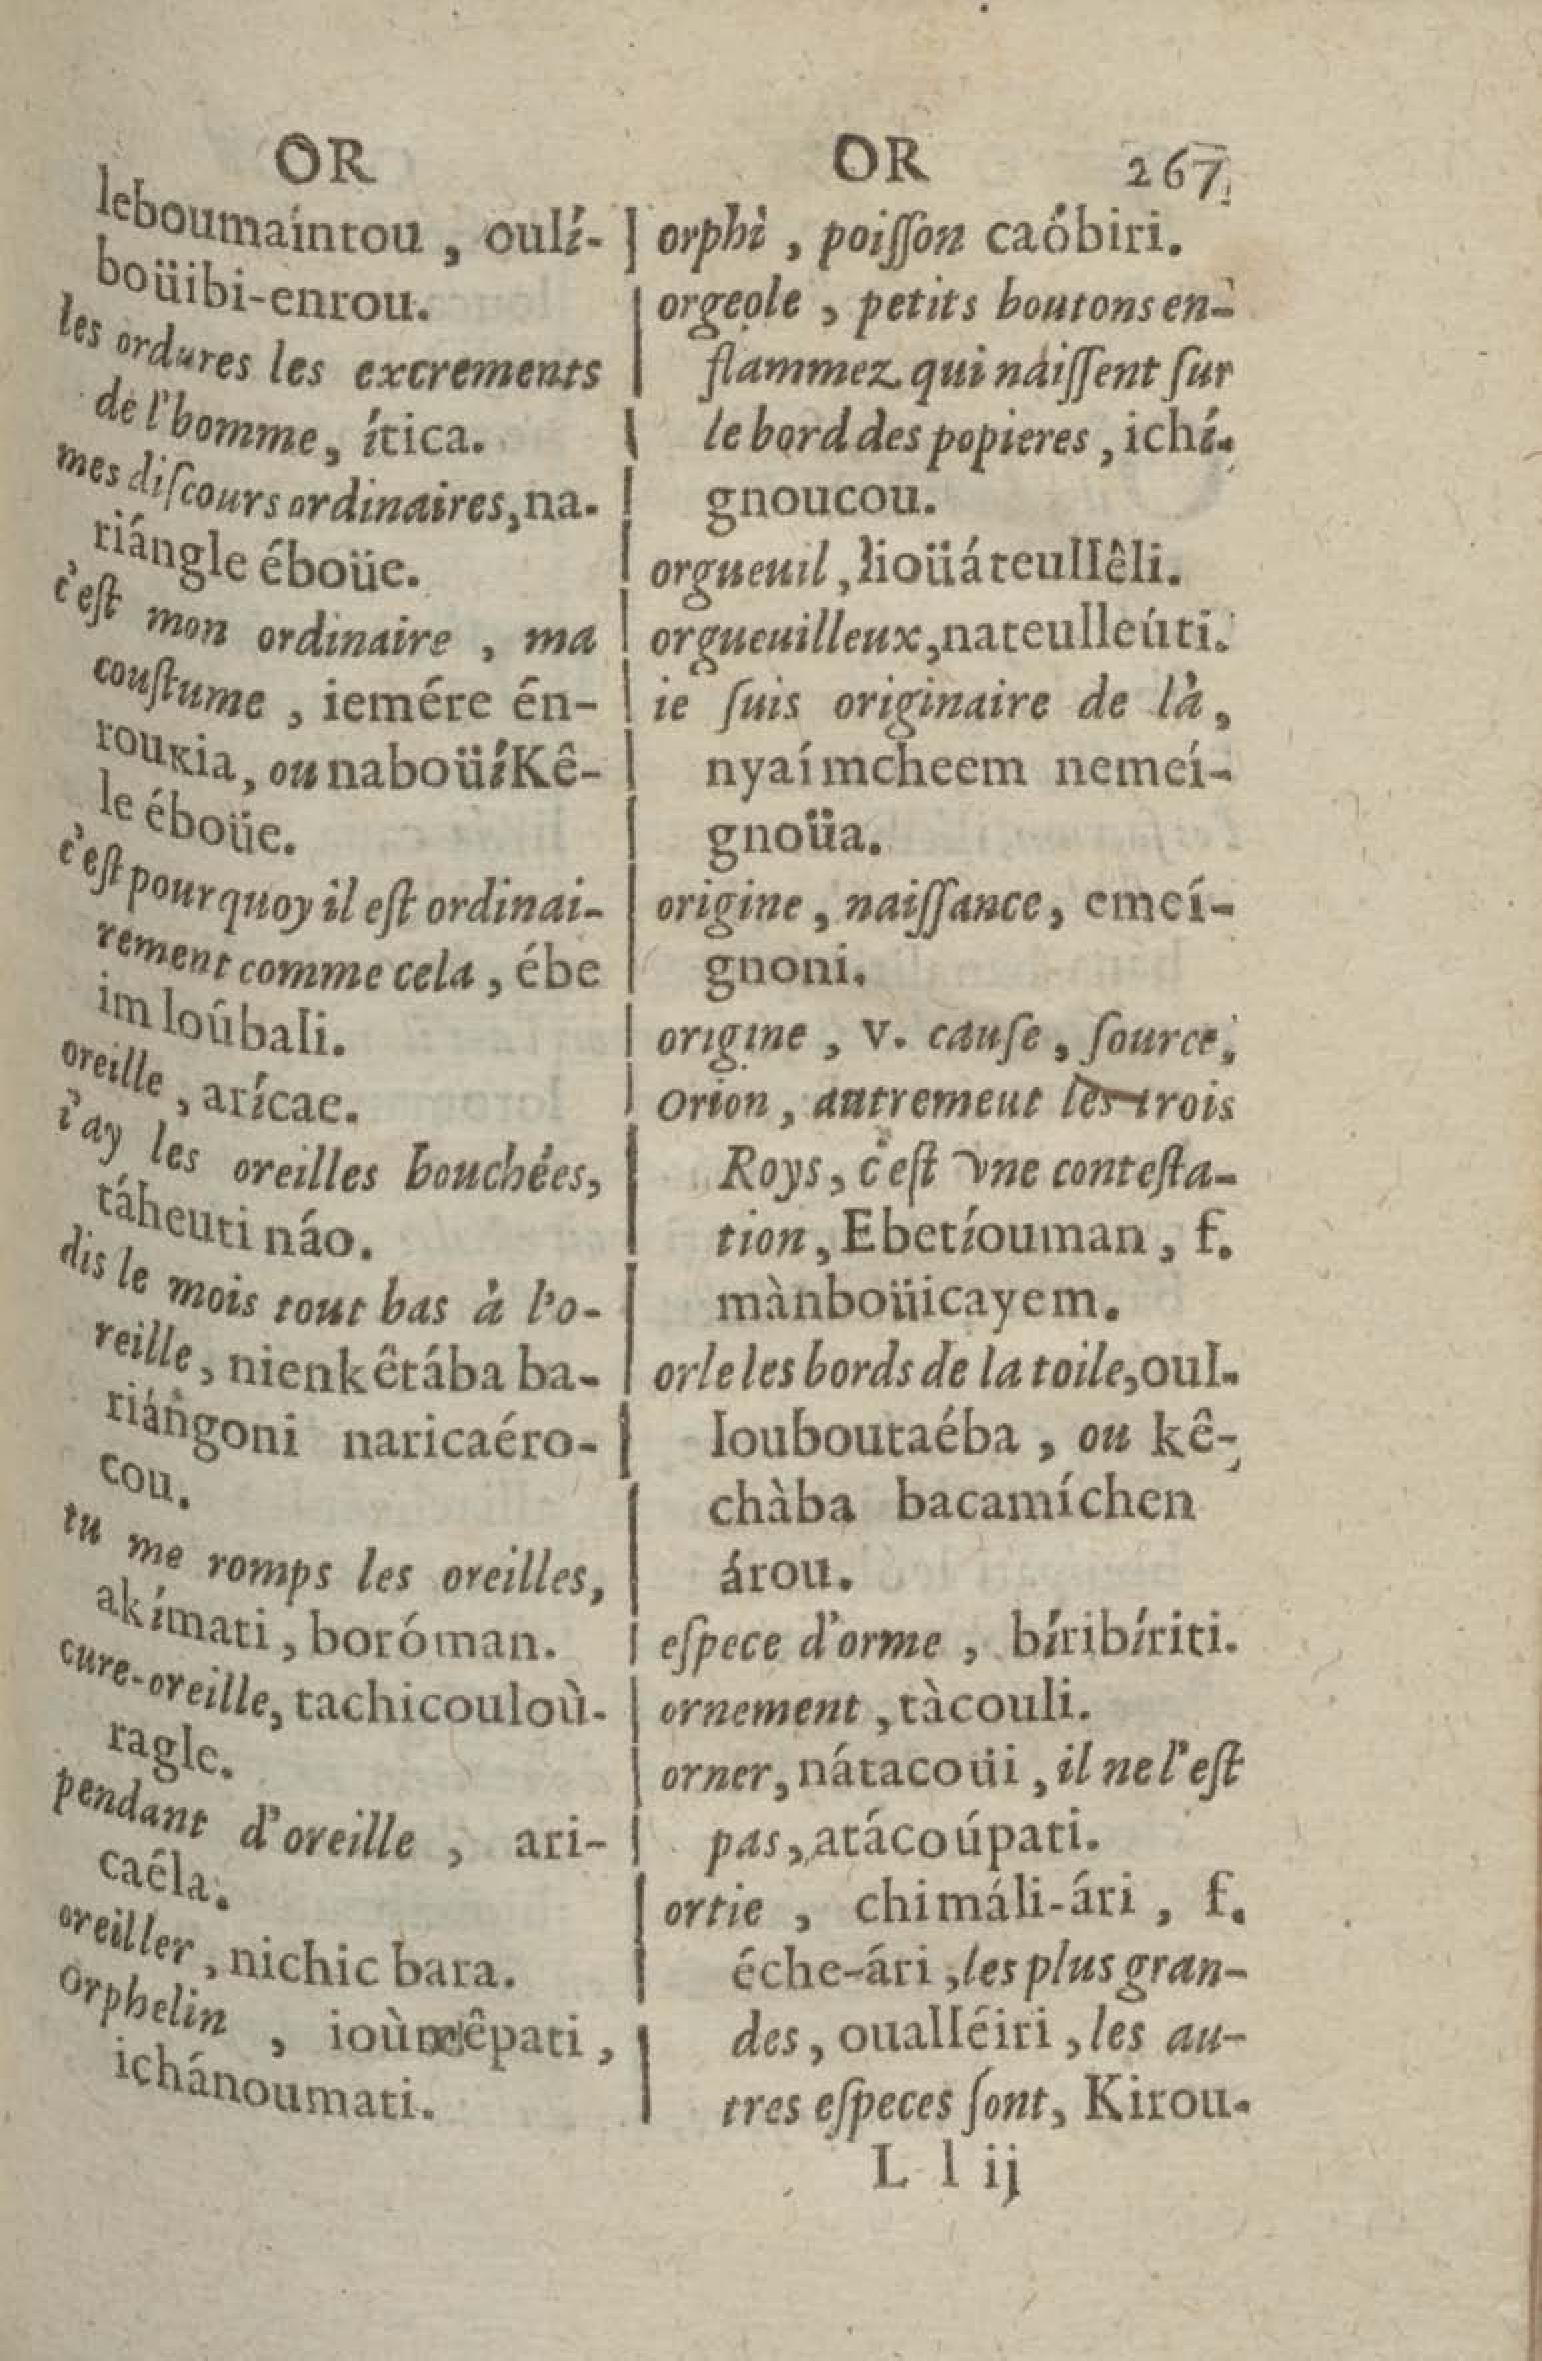 OR
leboumaíntou, oulí-
boüibi-enrou.
les ordures les excrements
de l'homme, ítica.
mes diſcours ordinaires, na-
riángle éboüe.
c'eſt mon ordinaire, ma
couſtume, iemére én-
rouкia, ou naboüíKê-
le éboüe.
c'eſt pourquoy il eſt ordinai-
rement comme cela, ébe
im loúbali.
oreille, arícae.
i'ay les oreilles bouchées,
táheuti náo.
dis le mois tout bas à l'o-
reille, nienkêtába ba-
riángoni naricaéro-
cou.
tu me romps les oreilles,
akímati, boróman.
cure-oreille, tachicouloù-
ragle.
pendant d'oreille, ari-
caéla.
oreiller, nichic bara.
Orphelin,
ichánoumati.
OR 267
orphi, poiſſon caóbiri.
orgeole, petits boutons en-
flammez qui naiſſent ſur
le bord des popieres, ichí-
gnoucou.
orgueuil, lioüáteullêli.
orgueuilleux, nateulleúti.
ie ſuis originaire de là,
nyaímcheem nemeí-
gnoüa.
origine, naiſſance, emeí-
gnoni.
origine, v. cauſe, ſource,
Orion, autremeut les trois
Roys, c'eſt vne conteſta-
tion, Ebetíouman, f.
mànboüicayem.
orle les bords de la toile, oul-
louboutaéba, ou kê-
chàba bacamíchen
árou.
eſpece d'orme, bíribíriti.
ornement, tàcouli.
orner, nátacoüi, il ne l'eſt
pas, atácoúpati.
ortie, chimáli-ári, f.
éche-ári, les plus gran-
des, oualléiri, les au-
tres eſpeces ſont, Kirou-
L l ij